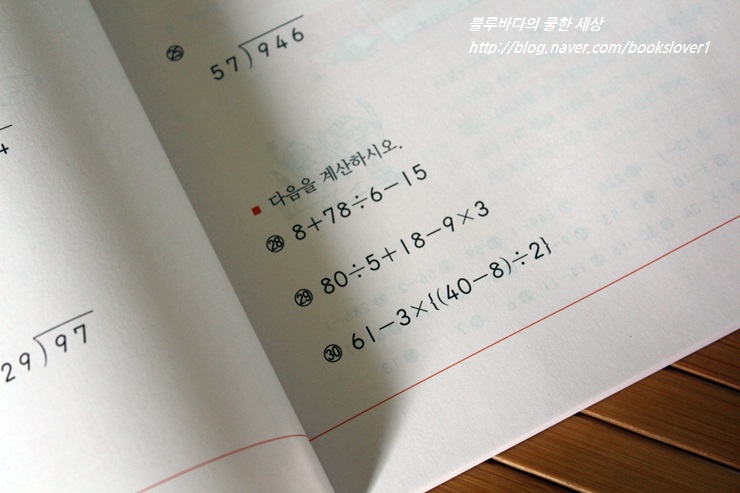 블루바다의 쿨한 세상
http://blog.naver.com/bookslover1
㉕ 57)946
■ 다음을 계산하시오.
㉘ 8+78÷6-15
㉙ 80÷5+18-9×3
㉚ 61-3×{(40-8)÷2}
29)97